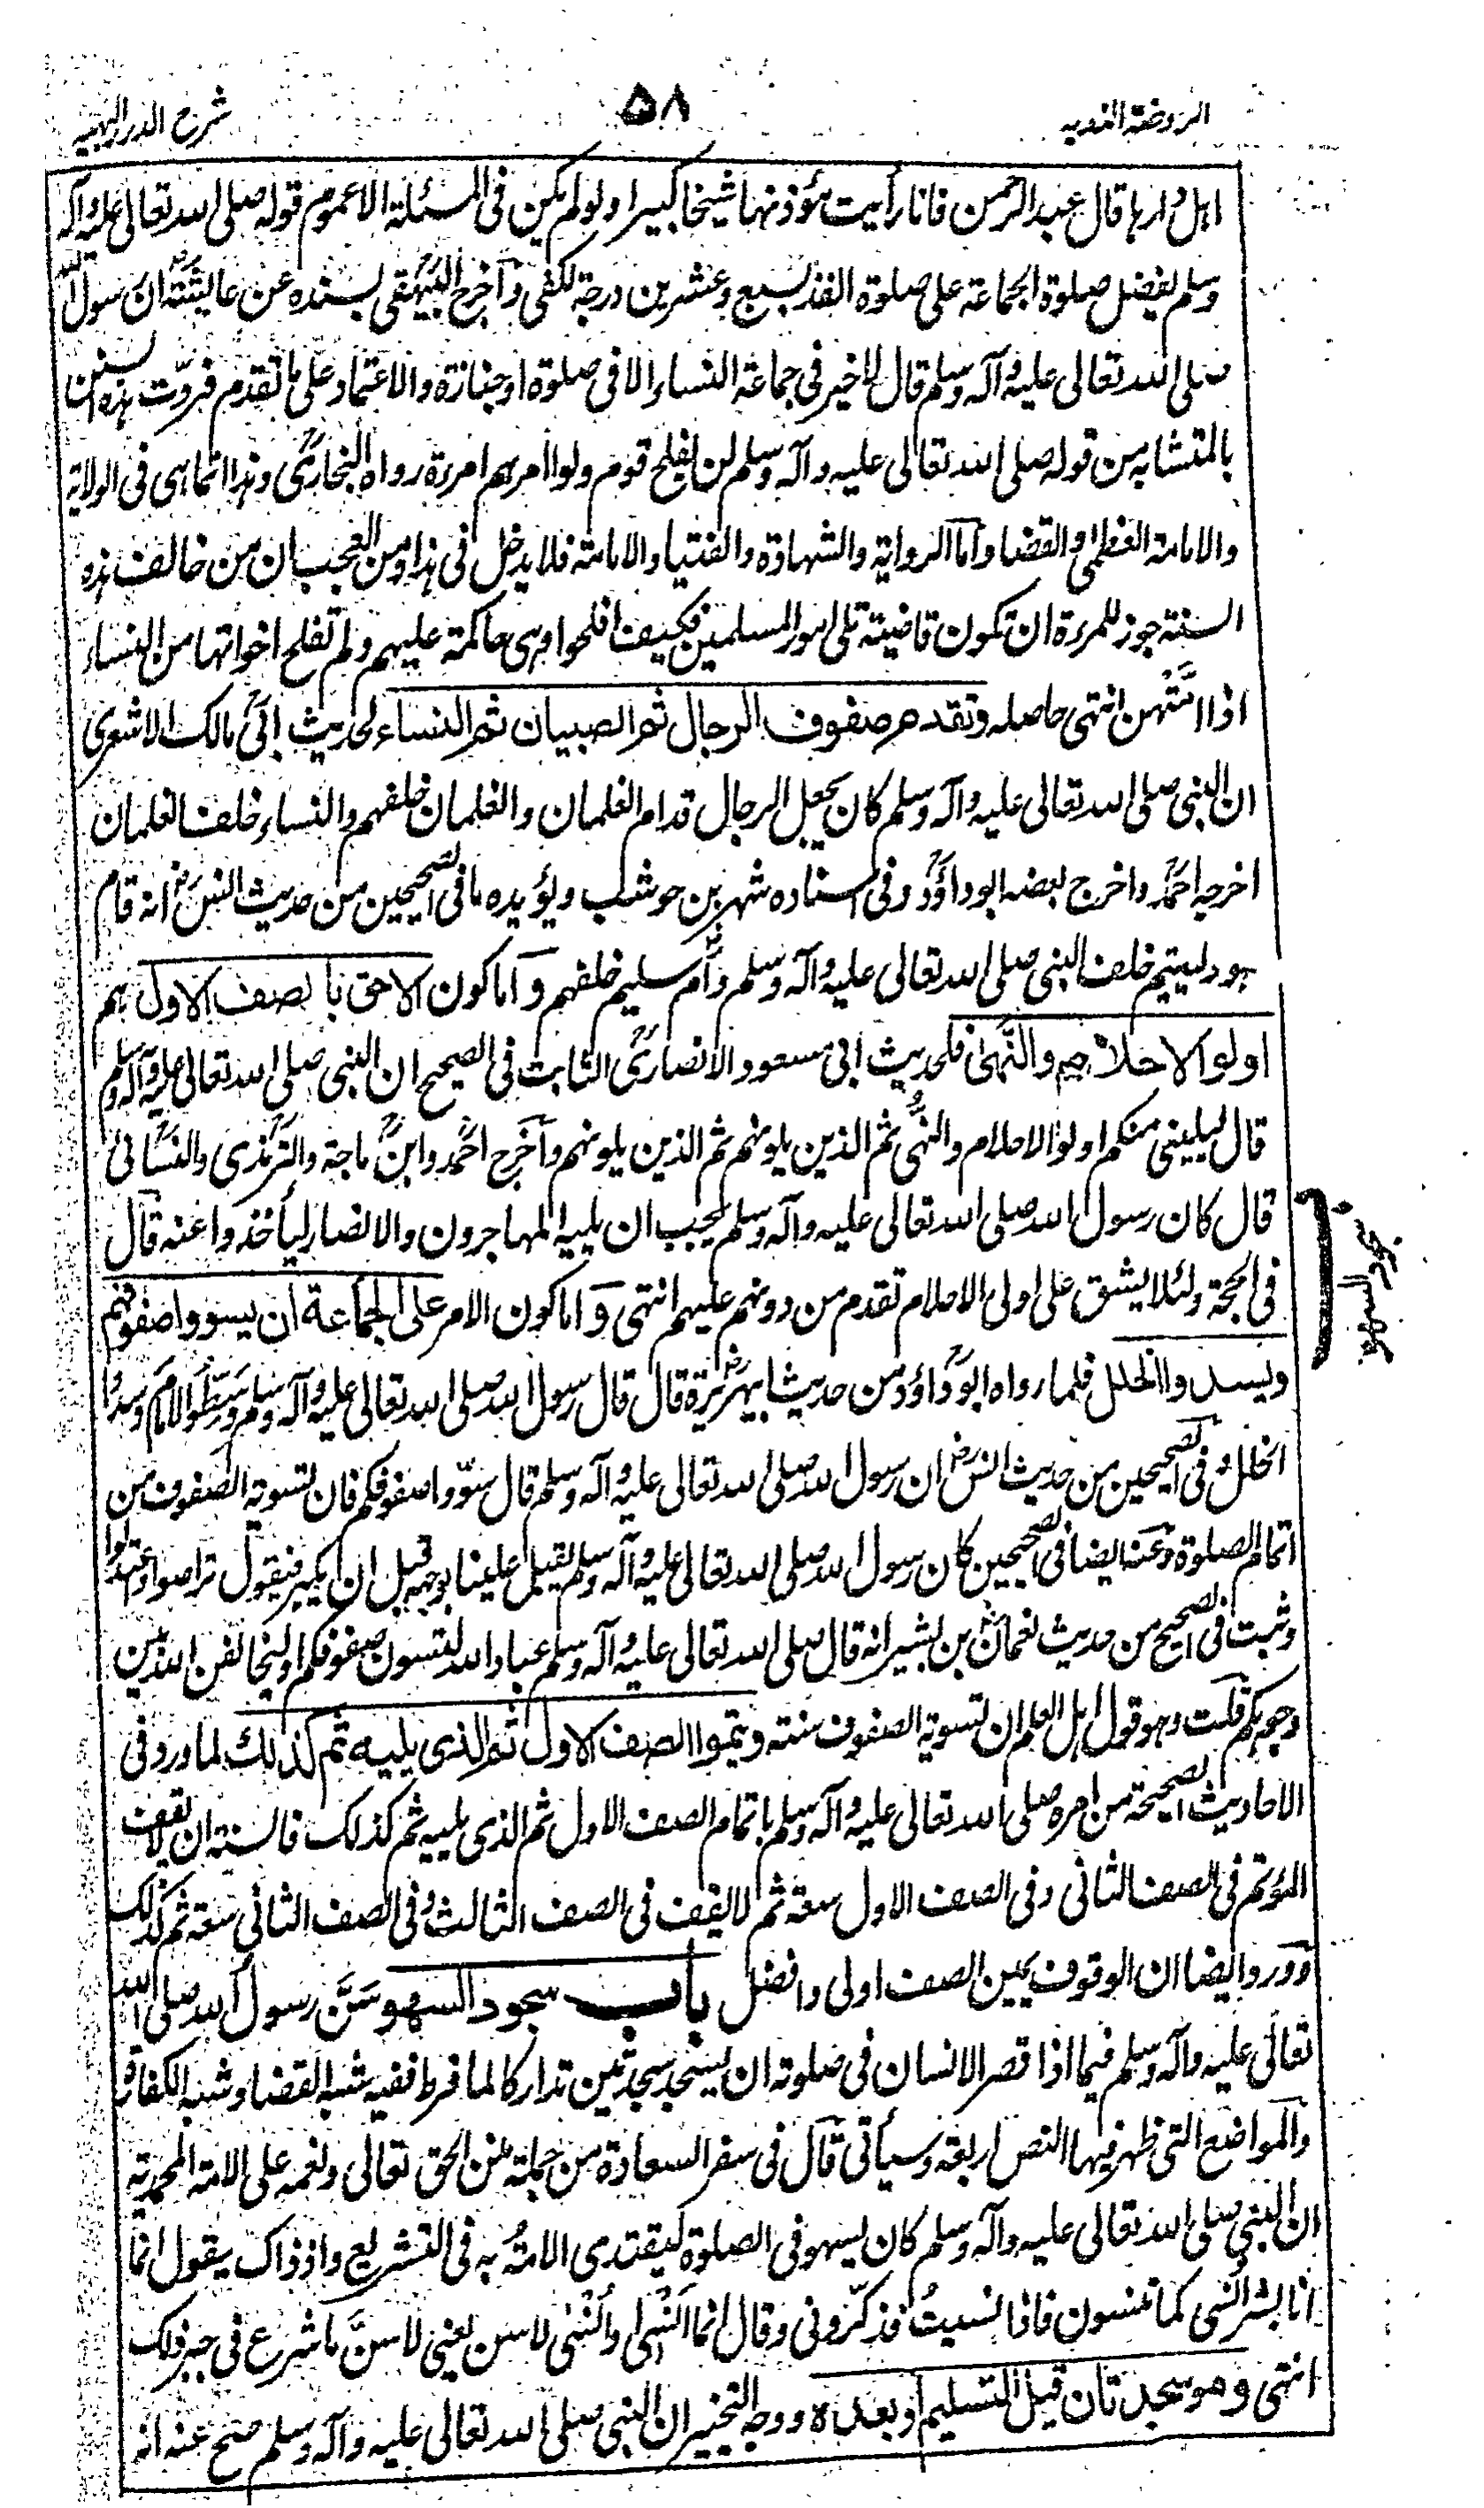 الروضة الندية
٥٨
شرح الدرر البهية
اهل دارها قال عبد الرحمن فانا رأيت مؤذنها شيخا كبيرا ولو لم يكن فى المسئلة الا عموم قوله صلى الله تعالى عليه وآله
وسلم تفضل صلوة الجماعة على صلوة الفذ بسبع وعشرين درجة لكفى وأخرج البيهقى بسنده عن عايشة ان رسول الله
صلى الله تعالى عليه وآله وسلم قال لا خير فى جماعة النساء الا فى صلوة او جنازة والاعتماد على ما تقدم فردّت هذه السنن
بالمتشابه من قوله صلى الله تعالى عليه وآله وسلم لن يفلح قوم ولوا امرهم امرءة رواه البخارى وهذا انما هى فى الولاية
والامامة العظمى والقضا وأما الرواية والشهادة والفتيا والامامة فلا يدخل فى هذا ومن العجب ان من خالف هذه
السنة جوز للمرءة ان تكون قاضية تلى امور المسلمين فكيف افلحوا وهى حاكمة عليهم ولم تفلح اخواتها من النساء
اذا امّتهن انتهى حاصله وتقدم صفوف الرجال ثم الصبيان ثم النساء لحديث ابى مالك الاشعرى
ان النبى صلى الله تعالى عليه وآله وسلم كان يجعل الرجال قدام الغلمان والغلمان خلفهم والنساء خلف الغلمان
اخرجه احمد واخرج بعضه ابو داؤد وفى اسناده شهر بن حوشب ويؤيده ما فى الصحيحين من حديث انس انه قام
هو واليتيم خلف النبى صلى الله تعالى عليه وآله وسلم وأم سليم خلفهم وأما كون الاحق بالصف الاول هم
اولو الاحلام والنهى فلحديث ابى مسعود الانصارى الثابت فى الصحيح ان النبى صلى الله تعالى عليه وآله وسلم
قال ليلينى منكم اولو الاحلام والنهى ثم الذين يلونهم ثم الذين يلونهم وأخرج احمد وابن ماجة والترمذى والنسائى
قال كان رسول الله صلى الله تعالى عليه وآله وسلم يحب ان يليه المهاجرون والانصار ليأخذوا عنه قال
فى الحجة ولئلا يشق على اولى الاحلام تقدم من دونهم عليهم انتهى وأما كون الامر على الجماعة ان يسووا صفوفهم
ويسدوا الخلل فلما رواه ابو داؤد من حديث ابيهريرة قال قال رسول الله صلى الله تعالى عليه وآله وسلم وسّطوا الامام وسدوا
الخلل وفى الصحيحين من حديث انس ان رسول الله صلى الله تعالى عليه وآله وسلم قال سوّوا صفوفكم فان تسوية الصفوف من
اتمام الصلوة وعنه ايضا فى الصحيحين كان رسول الله صلى الله تعالى عليه وآله وسلم يقبل علينا بوجهه قبل ان يكبر فيقول تراصوا واعتدلوا
وثبت فى الصحيح من حديث نعمان بن بشير انه قال صلى الله تعالى عليه وآله وسلم عباد الله لتسون صفوفكم او ليخالفن الله بين
وجوهكم قلت وهو قول اهل العلم ان تسوية الصفوف سنته ويتموا الصف الاول ثم الذى يليه ثم كذلك لما ورد فى
الاحاديث الصحيحة من امره صلى الله تعالى عليه وآله وسلم باتمام الصف الاول ثم الذى يليه ثم كذلك فالسنة ان لا يقف
المؤتم فى الصف الثانى وفى الصف الاول سعة ثم لا يقف فى الصف الثالث وفى الصف الثانى سعة ثم كذلك
وورد ايضا ان الوقوف يمين الصف اولى وافضل باب سجود السهو سنَّ رسول الله صلى الله
تعالى عليه وآله وسلم فيما اذا قصر الانسان فى صلوته ان يسجد سجدتين تداركا لما فرط ففيه شبه القضا وشبه الكفارة
والمواضع التى ظهر فيها النص اربعة وسيأتى قال فى سفر السعادة من جملة منن الحق تعالى ونعمه على الامة المحمدية
ان النبى صلى الله تعالى عليه وآله وسلم كان يسهو فى الصلوة ليقتدى الامة به فى التشريع واذ ذاك يقول انما
انا بشر انسى كما تنسون فاذا نسيت فذكّرونى وقال انما انسى او أنسى لاسن يعنى لاسنَّ ما شرع فى جبر ذلك
انتهى وهو سجدتان قبل التسليم او بعده ووجه التخيير ان النبى صلى الله تعالى عليه وآله وسلم صح عنه انه